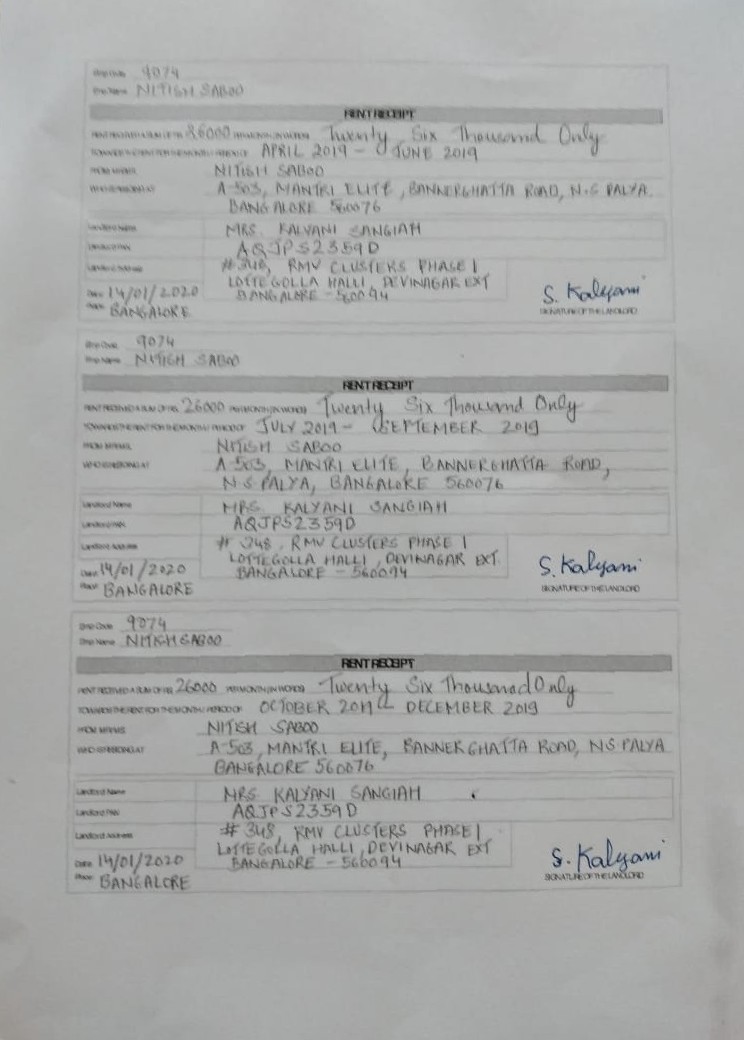 Emp Code 9074
Emp Name NITISH SABOO
RENT RECEIPT
RENT RECEIVED A SUM OF RS. 26000 PER MONTH (IN WORDS) Twenty Six Thousand Only
TOWARDS THE RENT FOR THE MONTH / PERIOD OF APRIL 2019 - JUNE 2019
FROM MR/MS. NITISH SABOO
WHO IS RESIDING AT A-503, MANTRI ELITE, BANNERGHATTA ROAD, N.S PALYA.
BANGALORE 560076
Landlord Name MRS. KALYANI SANGIAH
Landlord PAN AQJPS2359D
Landlord Address # 348, RMV CLUSTERS PHASE I
LOTTEGOLLA HALLI, DEVINAGAR EXT
Date 14/01/2020 BANGALORE - 560094
Place BANGALORE
S. Kalyani
SIGNATURE OF THE LANDLORD
Emp Code 9074
Emp Name NITISH SABOO
RENT RECEIPT
RENT RECEIVED A SUM OF RS. 26000 PER MONTH (IN WORDS) Twenty Six Thousand Only
TOWARDS THE RENT FOR THE MONTH / PERIOD OF JULY 2019 - SEPTEMBER 2019
FROM MR/MS. NITISH SABOO
WHO IS RESIDING AT A-503, MANTRI ELITE, BANNERGHATTA ROAD,
N.S PALYA, BANGALORE 560076
Landlord Name MRS. KALYANI SANGIAH
Landlord PAN AQJPS2359D
Landlord Address # 348, RMV CLUSTERS PHASE I
LOTTEGOLLA HALLI, DEVINAGAR EXT.
Date 14/01/2020 BANGALORE - 560094
Place BANGALORE
S. Kalyani
SIGNATURE OF THE LANDLORD
Emp Code 9074
Emp Name NITISH SABOO
RENT RECEIPT
RENT RECEIVED A SUM OF RS. 26000 PER MONTH (IN WORDS) Twenty Six Thousand Only
TOWARDS THE RENT FOR THE MONTH / PERIOD OF OCTOBER 2019 DECEMBER 2019
FROM MR/MS. NITISH SABOO
WHO IS RESIDING AT A-503, MANTRI ELITE, BANNERGHATTA ROAD, N.S PALYA
BANGALORE 560076
Landlord Name MRS KALYANI SANGIAH
Landlord PAN AQJPS2359D
Landlord Address # 348, RMV CLUSTERS PHASE I
LOTTEGOLLA HALLI, DEVINAGAR EXT
Date 14/01/2020 BANGALORE - 560094
Place BANGALORE
S. Kalyani
SIGNATURE OF THE LANDLORD